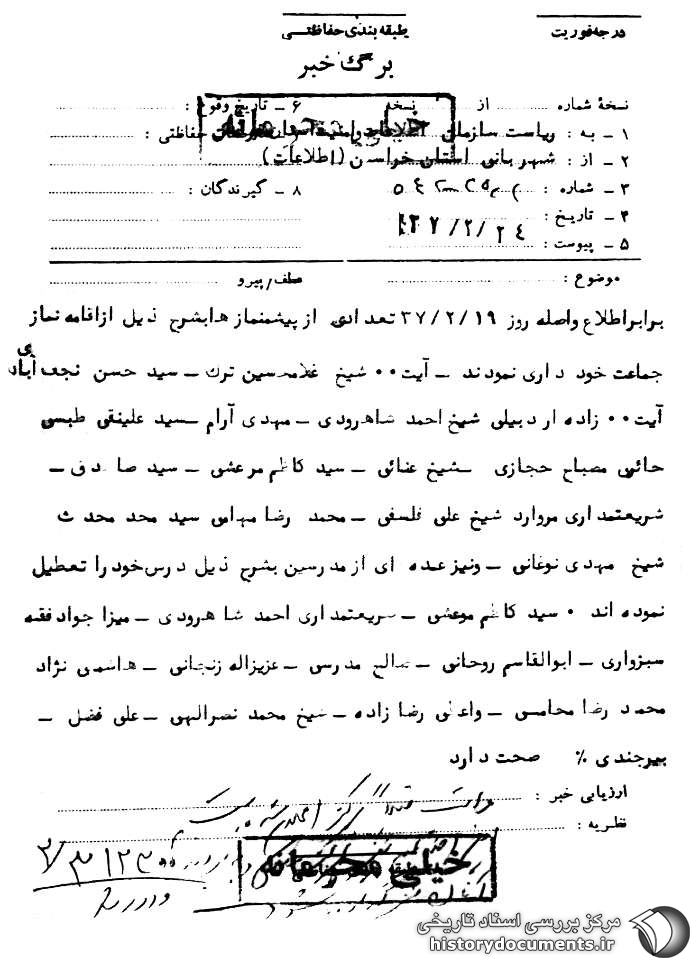 درجه فوریت
طبقه بندی حفاظتی
برگ خبر
نسخهٔ شماره از نسخه
۶ ـ تاریخ وقوع :
خیلی محرمانه
۱ ـ به : ریاست سازمان اطلاعات و امنیت خراسان
حفاظتی :
۲ ـ از : شهربانی استان خراسان (اطلاعات)
۳ ـ شماره :
۸ ـ گیرندگان :
۴ ـ تاریخ : ۳۷/۲/۲۴
۵ ـ پیوست :
موضوع :
عطف/پیرو
برابر اطلاع واصله روز ۳۷/۲/۱۹ تعدادی از پیشنمازها بشرح ذیل از اقامه نماز
جماعت خودداری نمودند ـ آیت۰۰ شیخ غلامحسین ترک ـ سید حسن نجف آبادی
آیت۰۰ زاده اردبیلی شیخ احمد شاهرودی ـ مهدی آرام ـ سید علینقی طبسی
حائمی مصباح حجازی ـ شیخ عنائی ـ سید کاظم مرعشی ـ سید صادق ـ
شریعتمداری مروارد شیخ علی فلسفی ـ محمد رضا مهامی سید محد محدث
شیخ مهدی نوغانی ـ ونیز عده ای از مدرسین بشرح ذیل درس خود را تعطیل
نموده اند ۰ سید کاظم موعشی ـ سریعتمداری احمد شاهرودی ـ میزا جواد فقه
سبزواری ـ ابوالقاسم روحانی ـ صالح مدرسی ـ عزیزاله زنجانی ـ هاشمی نژاد
محمد رضا محامی ـ واعلی رضا زاده ـ شیخ محمد نصرالهی ـ علی فضل ـ
بیرجندی ٪ صحت دارد
ارزیابی خبر :
نظریه :
خیلی محرمانه
مرکز بررسی اسناد تاریخی
historydocuments.ir